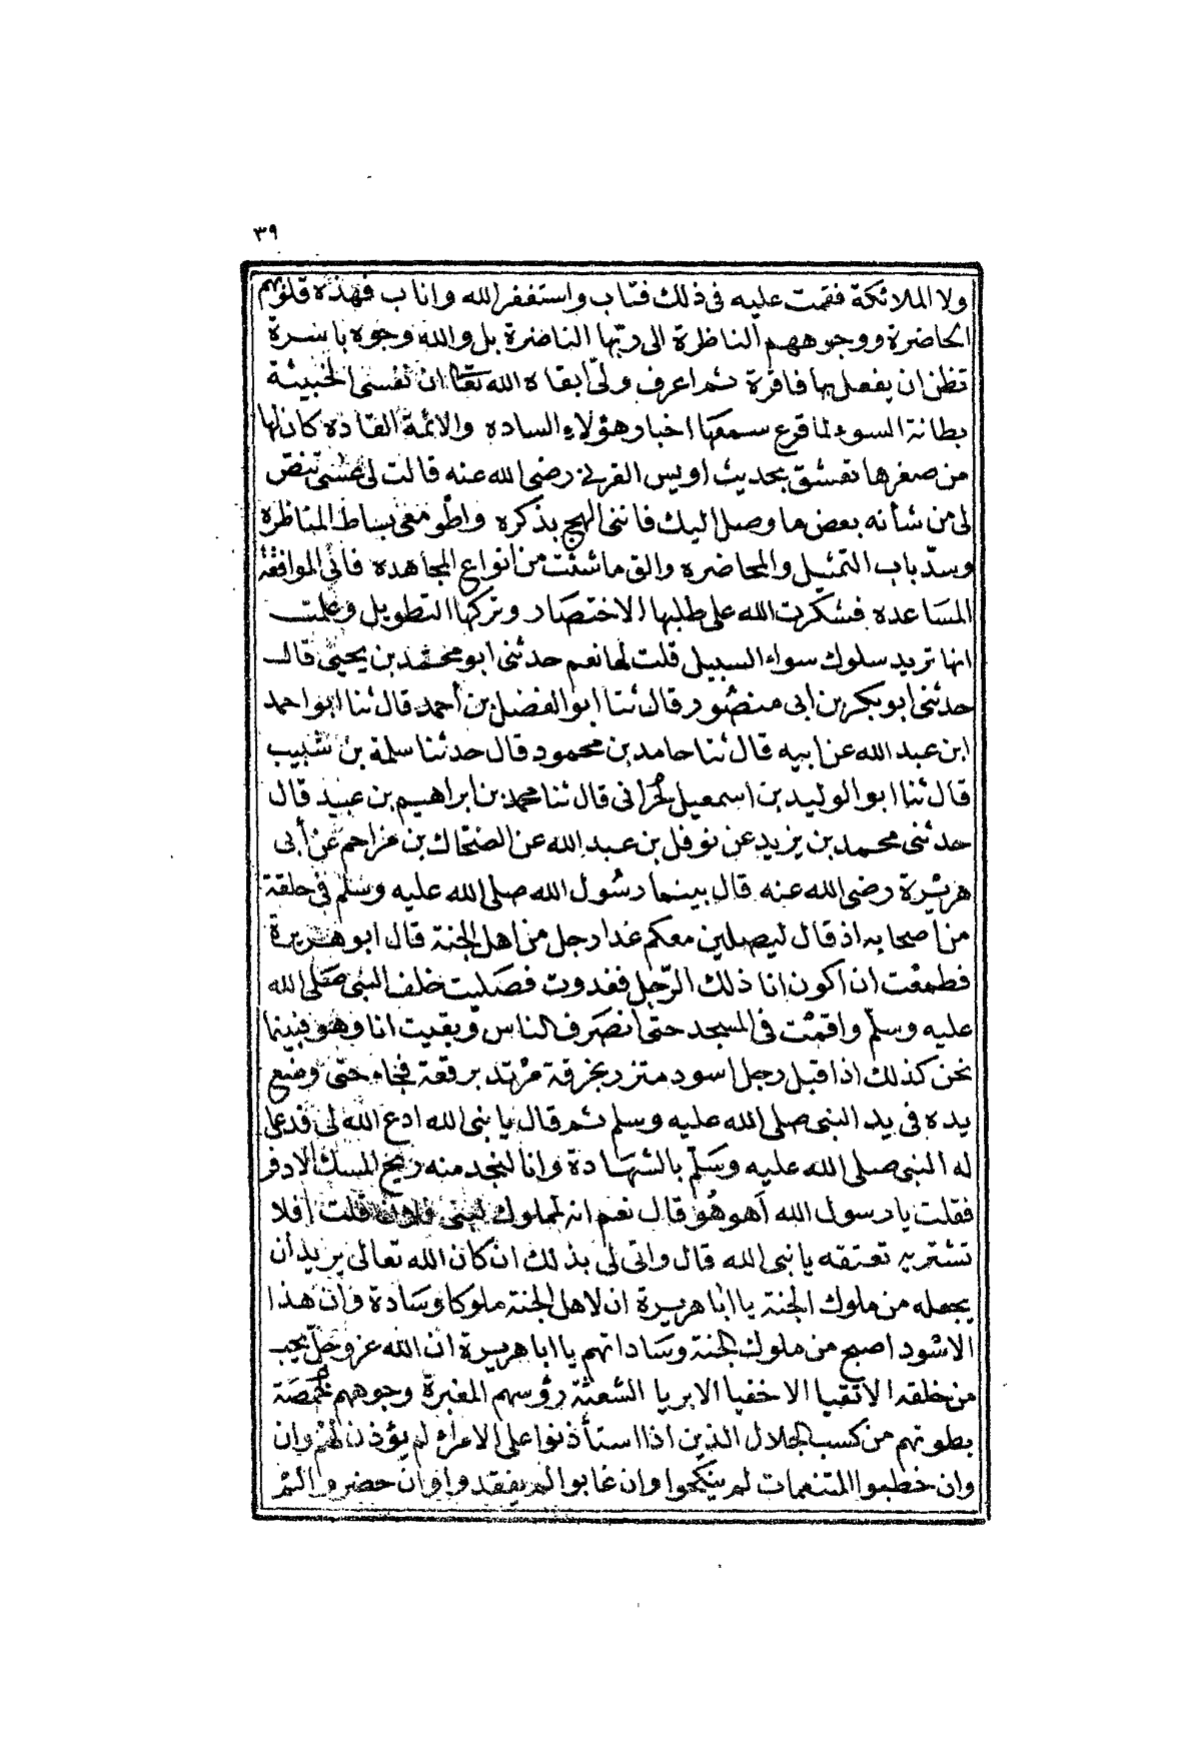 ٣٩
ولا الملائكة فقمت عليه فى ذلك فتاب واستغفر الله واناب فهذه قلوبهم
الحاضرة ووجوههم الناظرة الى ربّها الناضرة بل والله وجوه باسرة
تظن ان يفعل بها فاقرة ثم اعرف ولىّ ابقاه الله تعا ان نفسى الخبيثة
بطانة السوء لما قرع سمعها اخبار هؤلاء الساده والائمة القاده كان لها
من صغرها تعشق بحديث اويس القرنى رضى الله عنه قالت لى عسى تنص
لى من شأنه بعض ما وصل اليك فاننى الهج بذكره واطو معى بساط المناظرة
وسدّ باب التمثيل والمحاضره والق ما شئت من انواع المجاهده فانى الموافقة
المساعده فشكرت الله على طلبها الاختصار وتركها التطويل وعلمت
انها تريد سلوك سواء السبيل قلت لها نعم حدثنى ابو محمد بن يحيى قال
حدثنى ابو بكر بن ابى منصور قال ثنا ابو الفضل بن أحمد قال ثنا ابو احمد
ابن عبد الله عن ابيه قال ثنا حامد بن محمود قال حدثنا سلمة بن شبيب
قال ثنا ابو الوليد بن اسمعيل الحرانى قال ثنا محمد بن ابراهيم بن عبيد قال
حدثنى محمد بن يزيد عن نوفل بن عبد الله عن الضحاك بن مزاحم عن أبى
هريرة رضى الله عنه قال بينما رسول الله صلى الله عليه وسلم فى حلقة
من اصحابه اذ قال ليصلين معكم غدا رجل من اهل الجنة قال ابو هريرة
فطمعت ان اكون انا ذلك الرّجل فغدوت فصليت خلف النبى صلى الله
عليه وسلّم واقمت فى المسجد حتى انصرف الناس وبقيت انا وهو فبينما
نحن كذلك اذ اقبل رجل اسود متزر بخرقة مرتد برقعة فجاء حتى وضع
يده فى يد النبى صلى الله عليه وسلم ثم قال يا نبى الله ادع الله لى فدعا
له النبى صلى الله عليه وسَلّم بالشهادة وانا لنجد منه ريح المسك الادفر
فقلت يا رسول الله أهو هُو قال نعم انه لمملوك لبنى فلان قلت افلا
تشتريه تعتقه يا نبى الله قال وانى لى بذلك ان كان الله تعالى يريد أن
يجعله من ملوك الجنة يا ابا هريرة ان لاهل الجنة ملوكا وسادة وان هذا
الاسود اصبح من ملوك الجنة وساداتهم يا ابا هريرة ان الله عز وجلّ يحب
من خلقه الاتقيا الاخفيا الابريا الشعثة رؤسهم المغبرة وجوههم الخمصة
بطونهم من كسب الحلال الذين اذا استأذنوا على الامراء لم يؤذن لهم وان
وان خطبوا المتنعمات لم ينكحوا وان غابوا لم يفقدوا وان حضروا لم